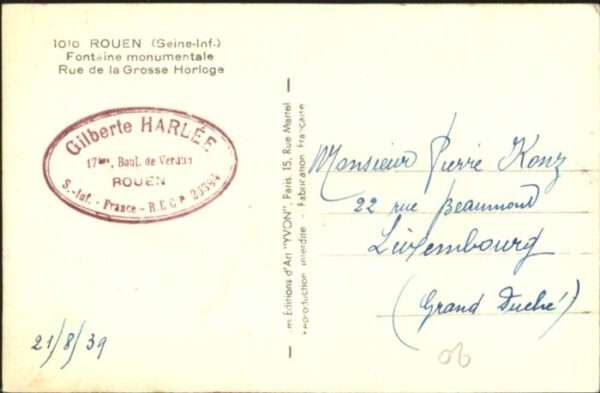 1010 ROUEN (Seine-Inf.)
Fontaine monumentale
Rue de la Grosse Horloge
Gilberte HARLÉE
17bis, Boul. de Verdun
ROUEN
S.-Inf. - France - R.E.C. 23594
21/8/39
Editions d'Art "YVON", Paris, 15, Rue Martel
Reproduction interdite - Fabrication Française
Monsieur Pierre Konz
22 rue Beaumont
Luxembourg
(Grand Duché)